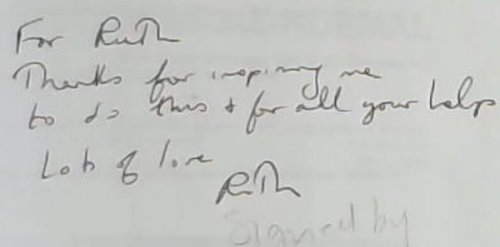 For Ruth
Thanks for inspiring me
to do this + for all your help
Lots of love
Ruth
Signed by